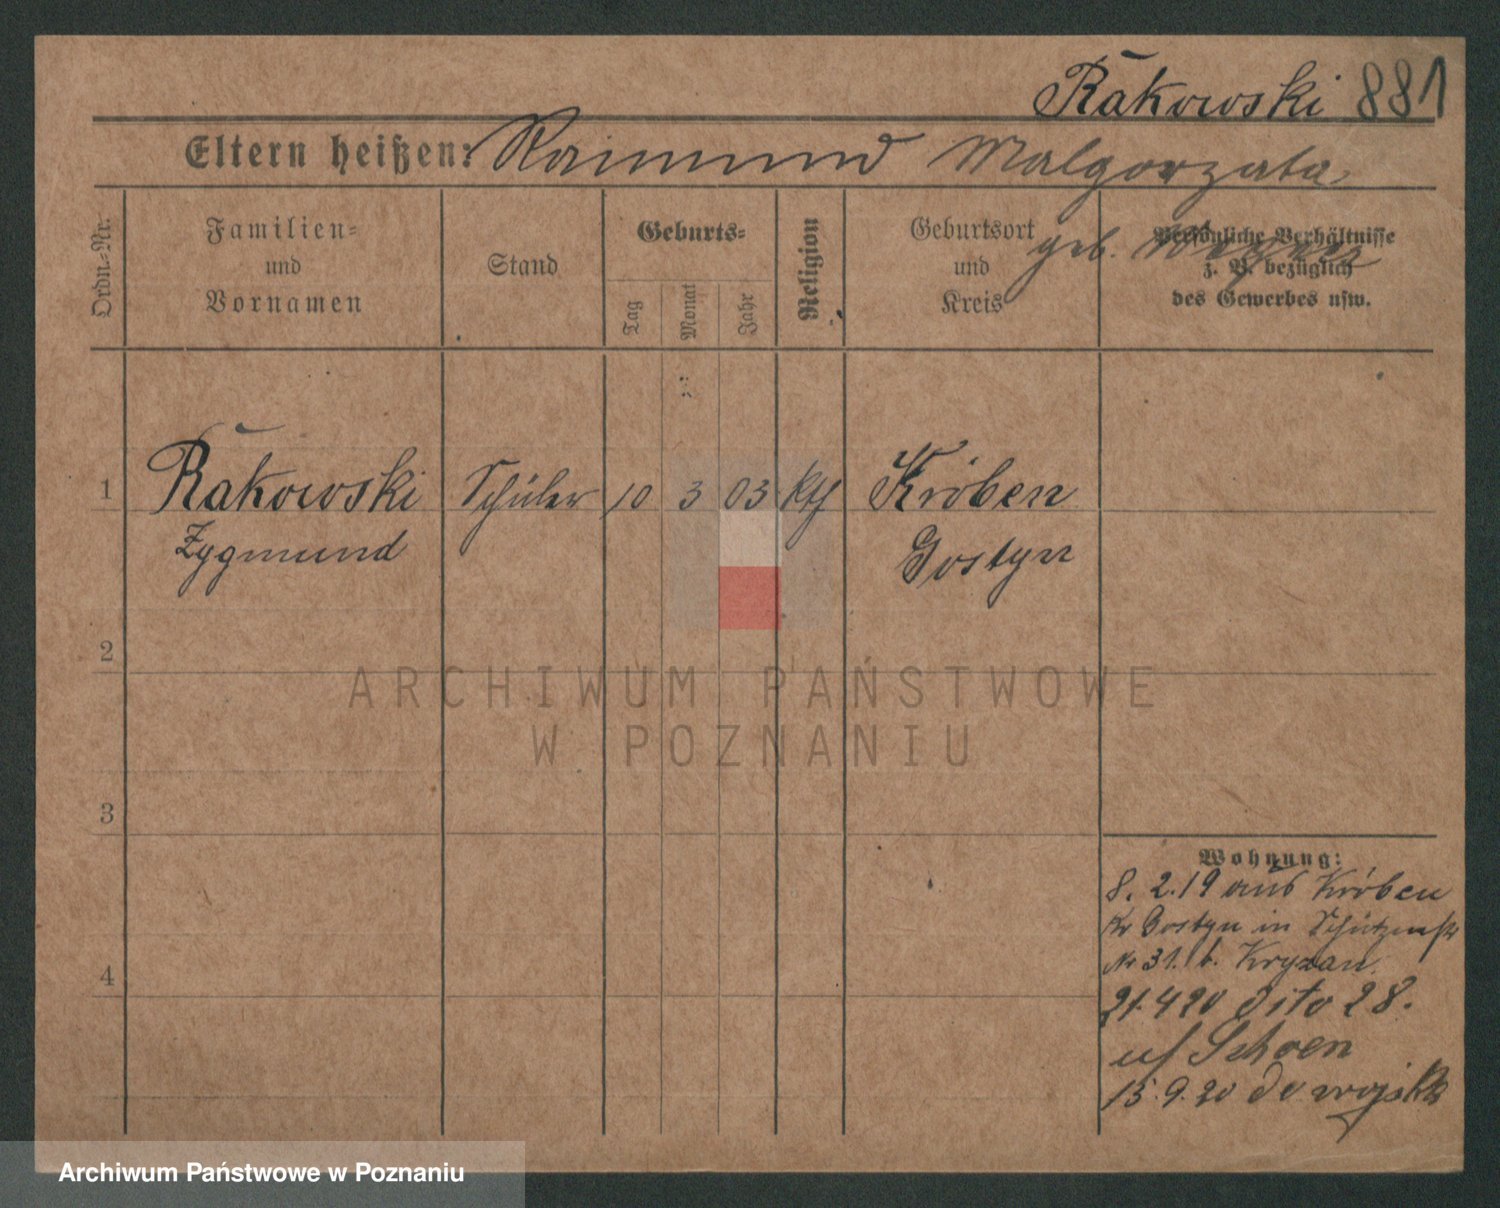 Rakowski 881
Eltern heißen: Raimund Malgorzata
geb. Wegner
Ordn.=Nr.
Familien=
und
Vornamen
Stand
Geburts=
Tag
Monat
Jahr
Religion
Geburtsort
und
Kreis
Persönliche Verhältnisse
z. B. bezüglich
des Gewerbes usw.
1 Rakowski Schüler 10 3 03 kth Kröben
Zygmund Gostyn
2
ARCHIWUM PAŃSTWOWE
W POZNANIU
3
Wohnung:
8. 2. 19 aus Kröben
Kr Gostyn in Schützenstr
Nr 31. b. Kryzan
4
21.4 20 dito 28.
b/ Schoen
15.9.20 do wojska
Archiwum Państwowe w Poznaniu